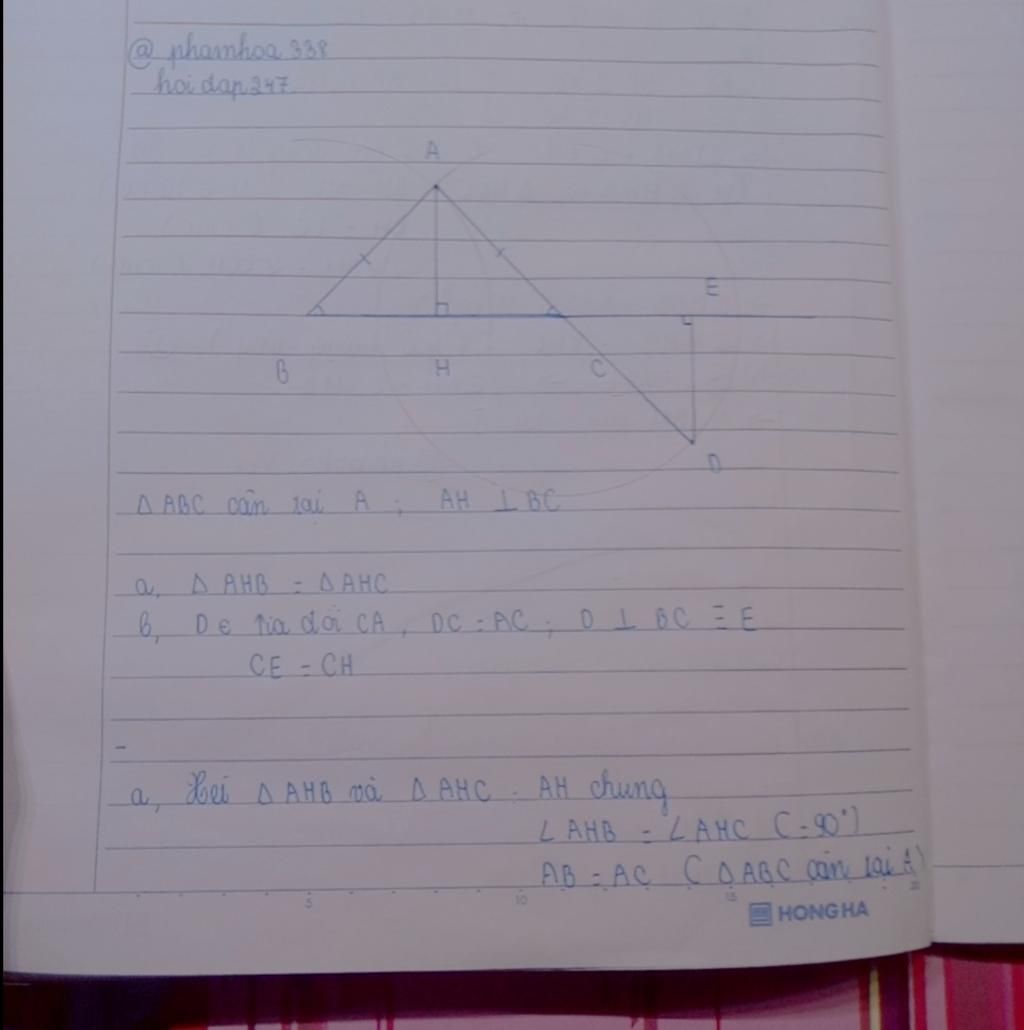 @ phamhoa 338
hoi dap247
A
E
B H C
D
Δ ABC cân tại A ; AH ⊥ BC
a, Δ AHB = Δ AHC
b, D ∈ tia đối CA , DC = AC ; D ⊥ BC ≡ E
CE = CH
-
a, Xét Δ AHB và Δ AHC . AH chung
∠ AHB = ∠ AHC ( = 90°)
AB = AC ( Δ ABC cân tại A)
5 10 15 20
HONG HA